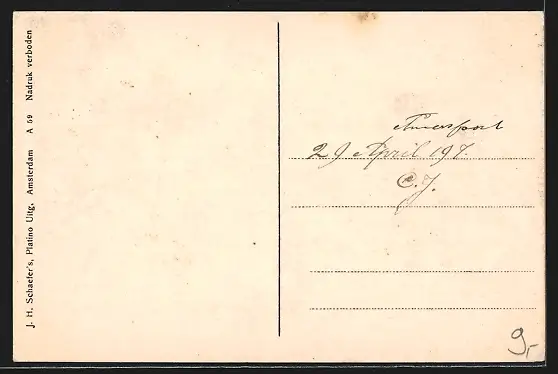 J. H. Schaefer's, Platino Uitg. Amsterdam A 69 Nadruk verboden
Amersfoort
29 April 197.
C. J.
9,-